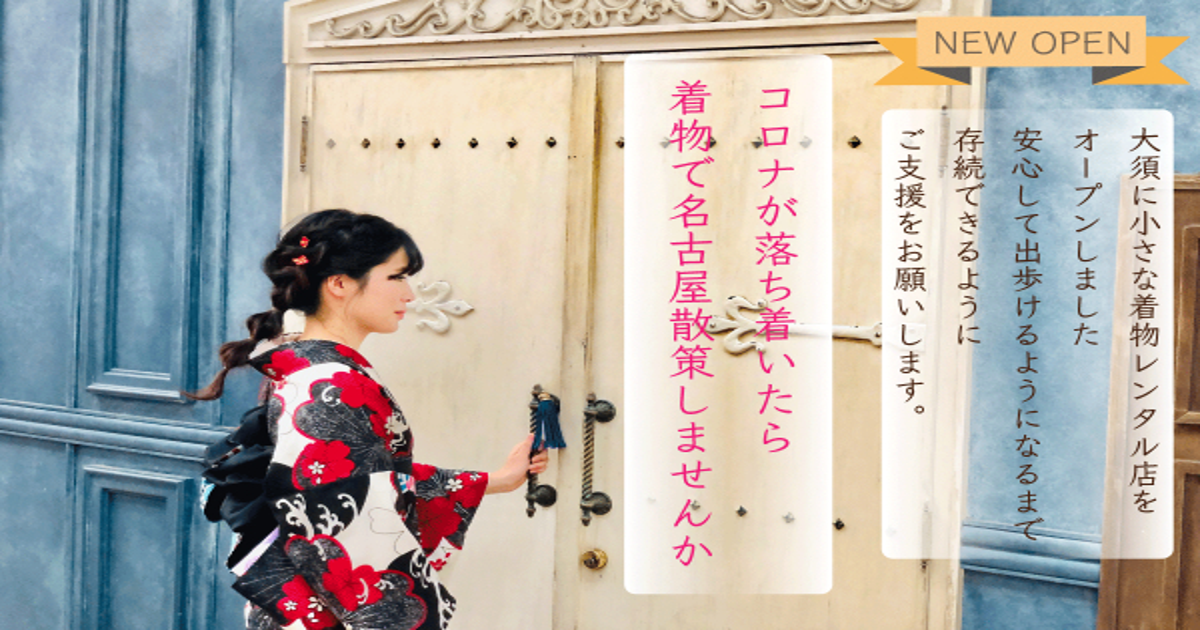 NEW OPEN
大須に小さな着物レンタル店を
オープンしました
安心して出歩けるようになるまで
存続できるように
ご支援をお願いします。
コロナが落ち着いたら
着物で名古屋散策しませんか